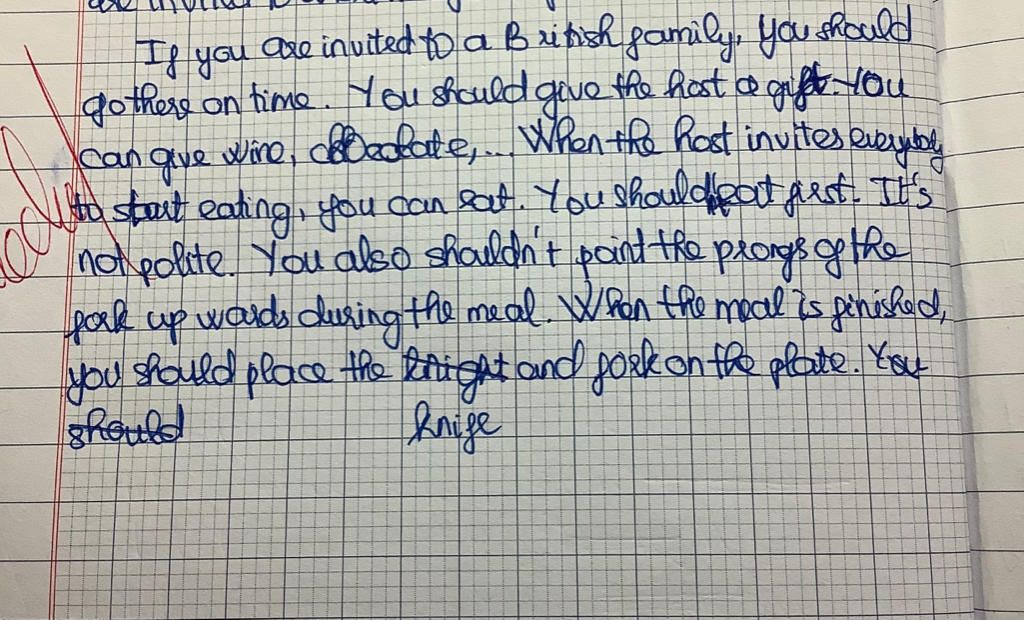 If you are invited to a British family, you should
go there on time. You should give the host a gift. You
can give wine, chocolate,... When the host invites everybody
to start eating, you can eat. You should eat first. It's
not polite. You also shouldn't point the prongs of the
fork up wards during the meal. When the meal is finished,
you should place the knight and fork on the plate. You
should knife